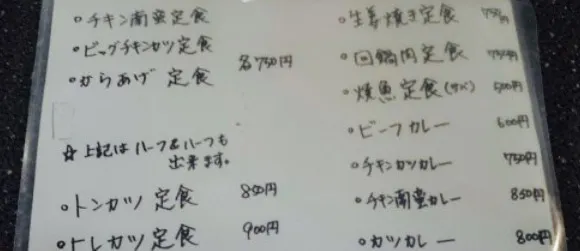 ・チキン南蛮定食
・ビッグチキンカツ定食
・からあげ 定食 各750円
☆上記はハーフ&ハーフも
出来ます。
・トンカツ 定食 850円
・ヒレカツ 定食 900円
・生姜焼き定食 750円
・回鍋肉定食 750円
・焼魚定食(サバ) 500円
・ビーフカレー 600円
・チキンカツカレー 750円
・チキン南蛮カレー 850円
・カツカレー 800円